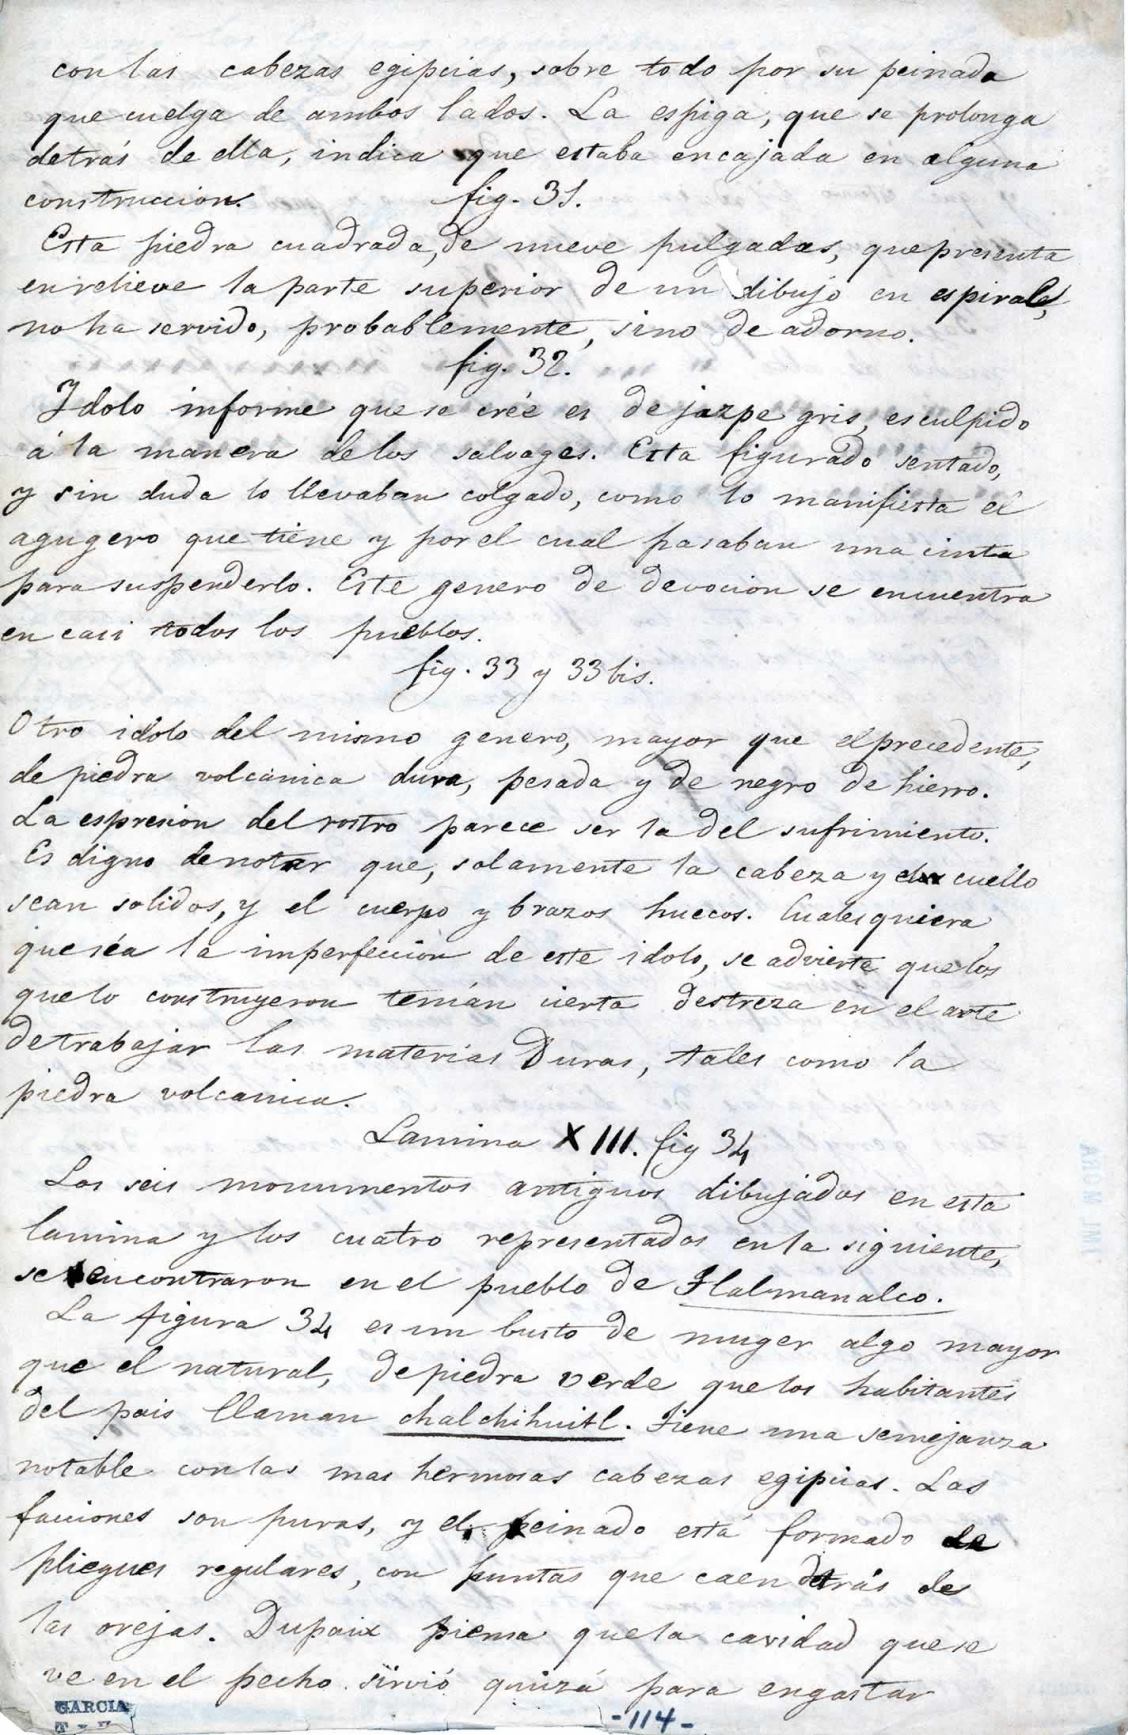 con las cabezas egipcias, sobre todo por su peinada
que cuelga de ambos lados. La espiga, que se prolonga
detrás de ella, indica que estaba encajada en alguna
construccion. fig. 31.
Esta piedra cuadrada, de nueve pulgadas, que presenta
en relieve la parte superior de un dibujo en espirales,
no ha servido, probablemente, sino de adorno.
fig. 32.
Idolo informe que se crée es de jazpe gris, esculpido
á la manera de los salvages. Esta figurado sentado,
y sin duda lo llevaban colgado, como lo manifiesta el
agugero que tiene y por el cual pasaban una cinta
para suspenderlo. Este genero de devocion se encuentra
en casi todos los pueblos.
fig. 33 y 33 bis.
Otro idolo del mismo genero, mayor que el precedente,
de piedra volcánica dura, pesada y de negro de hierro.
La espresion del rostro parece ser la del sufrimiento.
Es digno de notar que, solamente la cabeza y el cuello
sean solidos, y el cuerpo y brazos huecos. Cualesquiera
que séa la imperfeccion de este idolo, se advierte que los
que lo construyeron tenían cierta destreza en el arte
de trabajar las materias Duras, tales como la
piedra volcanica.
Lamina XIII. fig 34
Los seis monumentos antiguos dibujados en esta
lamina y los cuatro representados en la siguiente,
se encontraron en el pueblo de Tlalmanalco.
La figura 34 es un busto de muger algo mayor
que el natural, de piedra verde que los habitantes
del pais llaman chalchihuitl. Tiene una semejanza
notable con las mas hermosas cabezas egipcias. Las
facciones son puras, y el peinado está formado de
pliegues regulares, con puntas que caen detrás de
las orejas. Dupaix piensa que la cavidad que se
ve en el pecho sirvió quizá para engastar
GARCIA
-114-